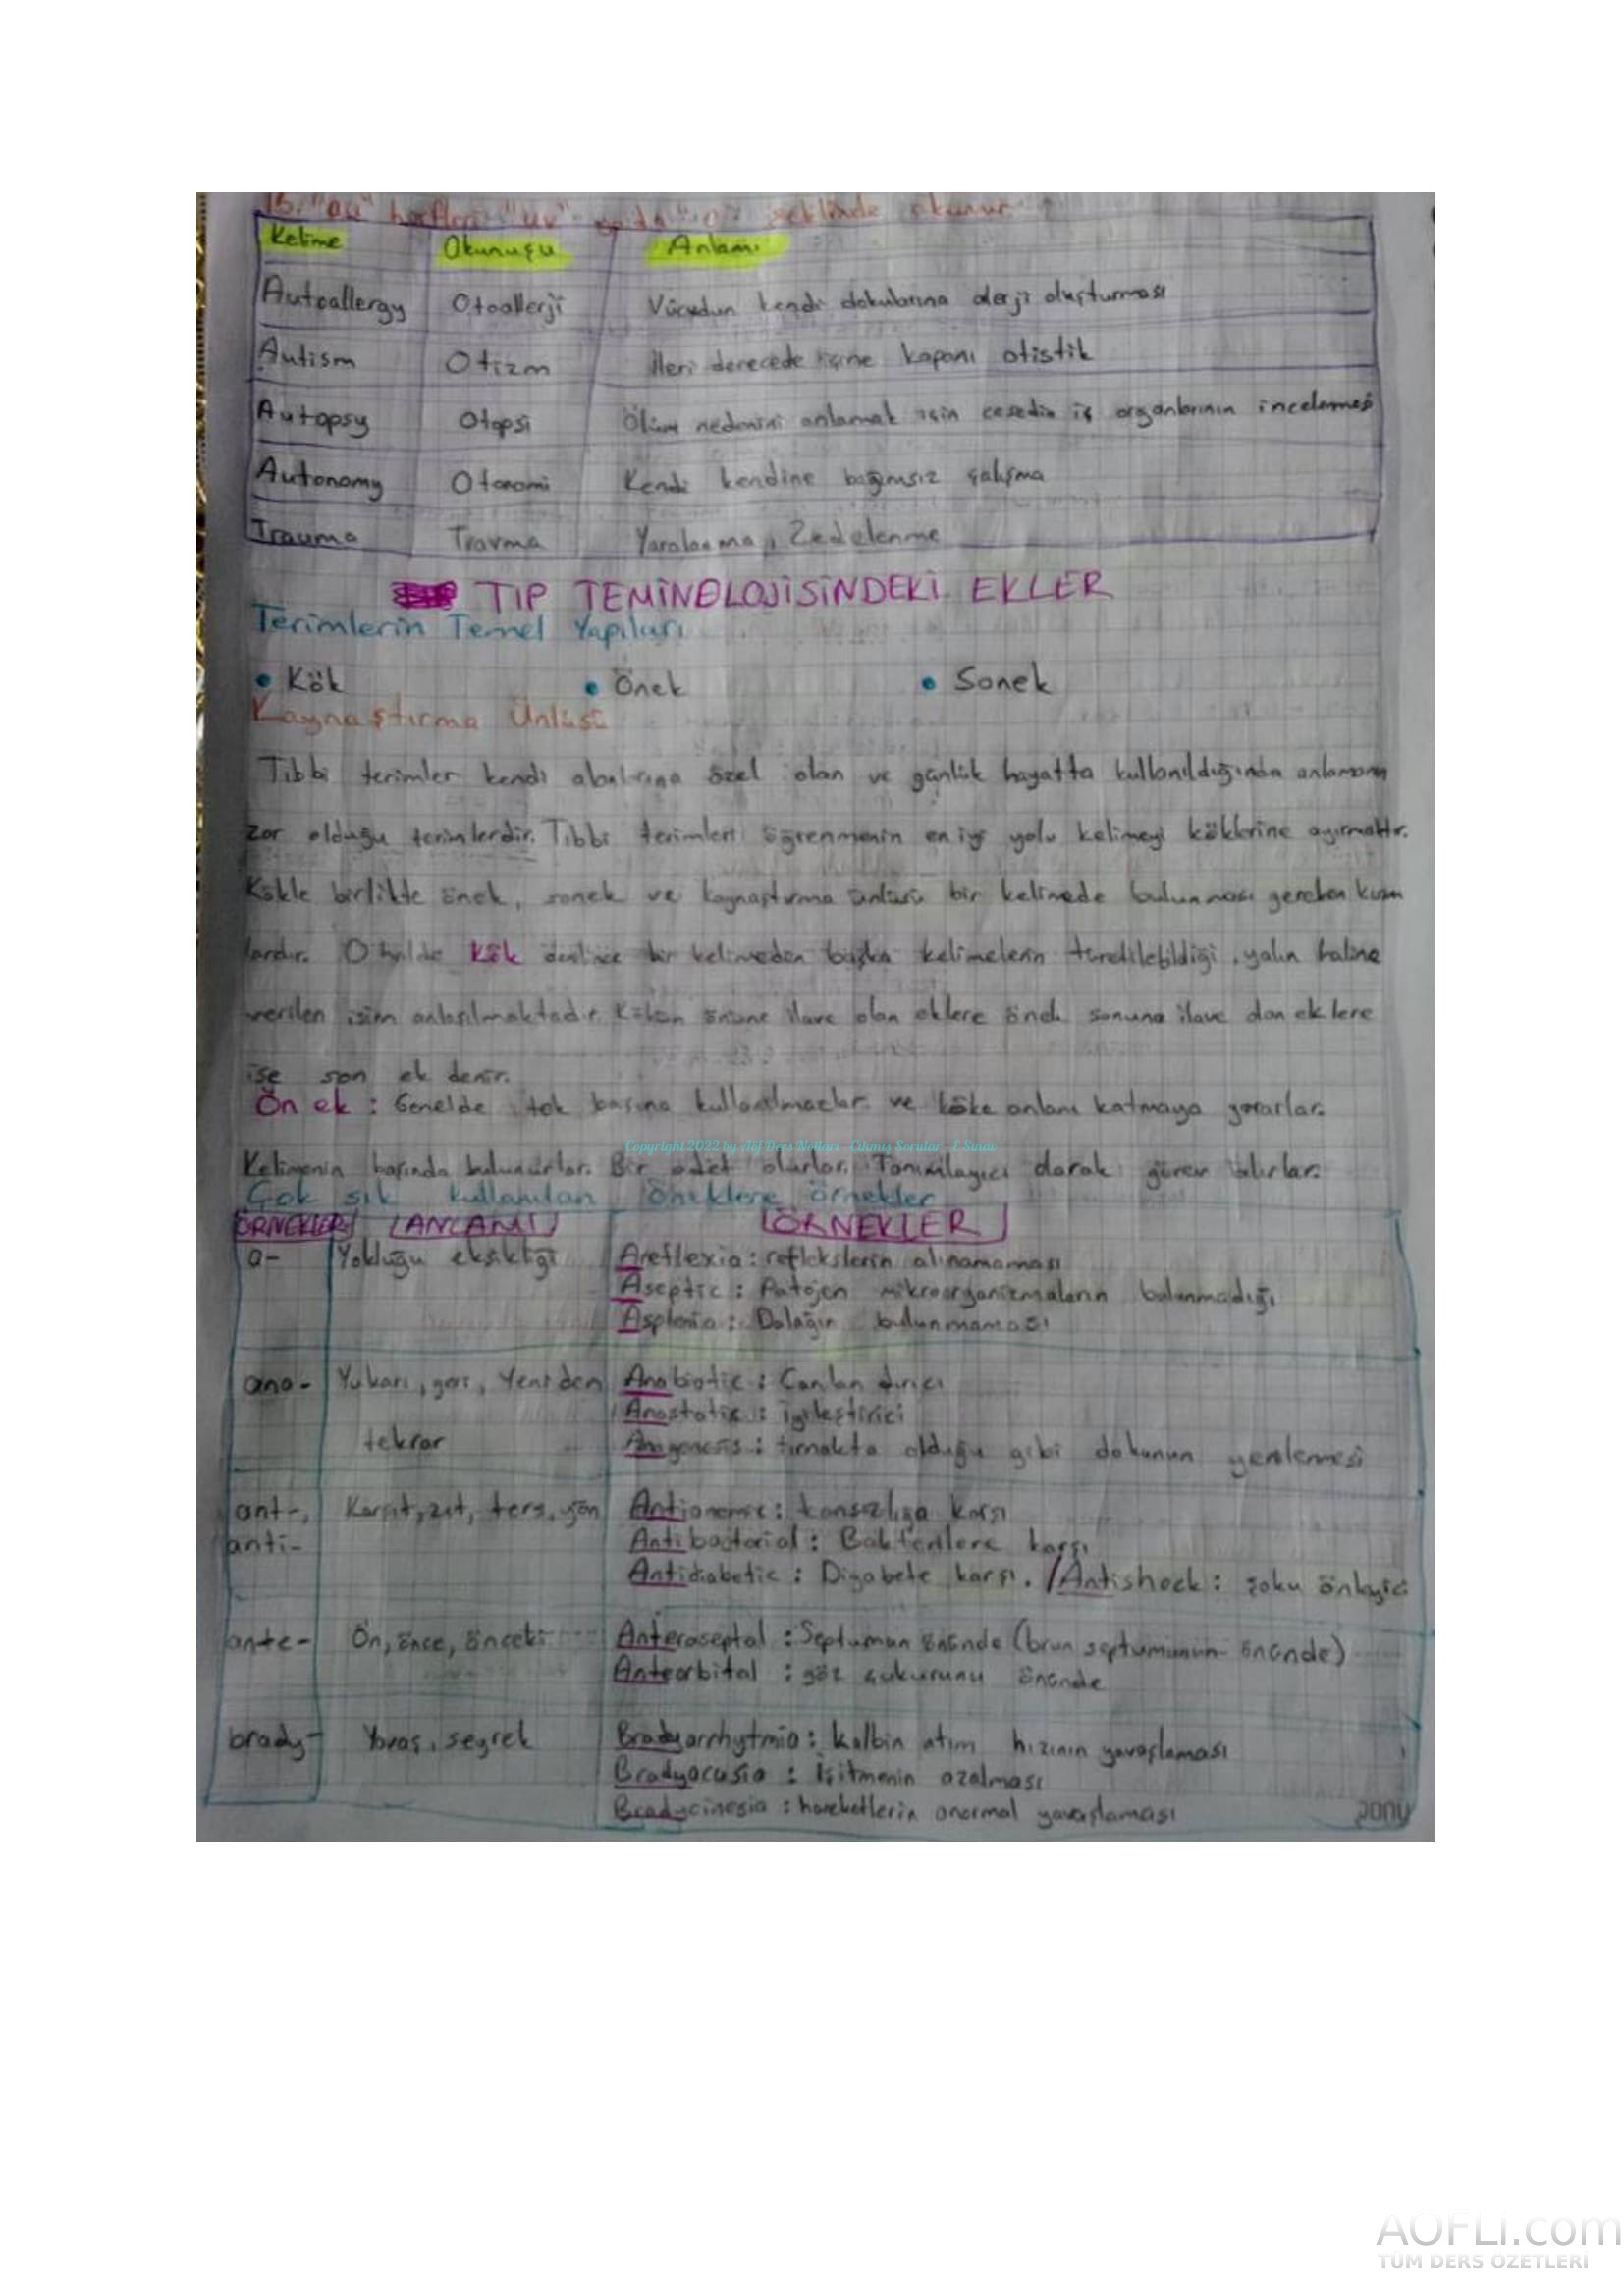 15. "au" harfleri "uv" ya da "o" şeklinde okunur
Kelime Okunuşu Anlamı
Autoallergy Otoallerji Vücudun kendi dokularına alerji oluşturması
Autism Otizm İleri derecede içine kapanı otistik
Autopsy Otopsi Ölüm nedenini anlamak için cesedin iç organlarının incelemesi
Autonomy Otonomi Kendi kendine bağımsız çalışma
Trauma Travma Yaralanma, Zedelenme
TIP TEMİNOLOJİSİNDEKİ EKLER
Terimlerin Temel Yapıları
• Kök • Önek • Sonek
Kaynaştırma Ünlüsü
Tıbbi terimler kendi alanlarına özel olan ve günlük hayatta kullanıldığında anlamanın
zor olduğu terimlerdir. Tıbbi terimleri öğrenmenin en iyi yolu kelimeyi köklerine ayırmaktır.
Kökle birlikte önek, sonek ve kaynaştırma ünlüsü bir kelimede bulunması gereken kısım
lardır. O halde Kök denilince bir kelimeden başka kelimelerin türetilebildiği, yalın haline
verilen isim anlaşılmaktadır. Kökün önüne ilave olan eklere önek sonuna ilave olan eklere
ise son ek denir.
Ön ek : Genelde tek başına kullanılmazlar ve köke anlam katmaya yararlar.
Copyright 2022 by Aöf Ders Notları - Çıkmış Sorular - E Sınav
Kelimenin başında bulunurlar. Bir adet olurlar. Tanımlayıcı olarak görev alırlar.
Çok sık kullanılan öneklere örnekler
ÖRNEKLER ANLAMI ÖRNEKLER
a- Yokluğu eksikliği Areflexia : reflekslerin alınamaması
Aseptic : Patojen mikroorganizmaların bulunmadığı
Asplenia : Dalağın bulunmaması
ana- Yukarı, geri, Yeniden Anabiotic : Canlandırıcı
Anastatic : İyileştirici
tekrar Anagenesis : tırnakta olduğu gibi dokunun yenilenmesi
ant-, Karşıt, zıt, ters, yön Antianemic : kansızlığa karşı
anti- Antibacterial : Bakterilere karşı
Antidiabetic : Diyabete karşı. / Antishock : şoku önleyici
ante- Ön, önce, önceki Anteroseptal : Septumun önünde (burun septumunun önünde)
Anteorbital : göz çukurunu önünde
brady- Yavaş, seyrek Bradyarrhytmia : kalbin atım hızının yavaşlaması
Bradyacusia : İşitmenin azalması
Bradycinesia : hareketlerin anormal yavaşlaması
AOFLI.com
TÜM DERS ÖZETLERİ